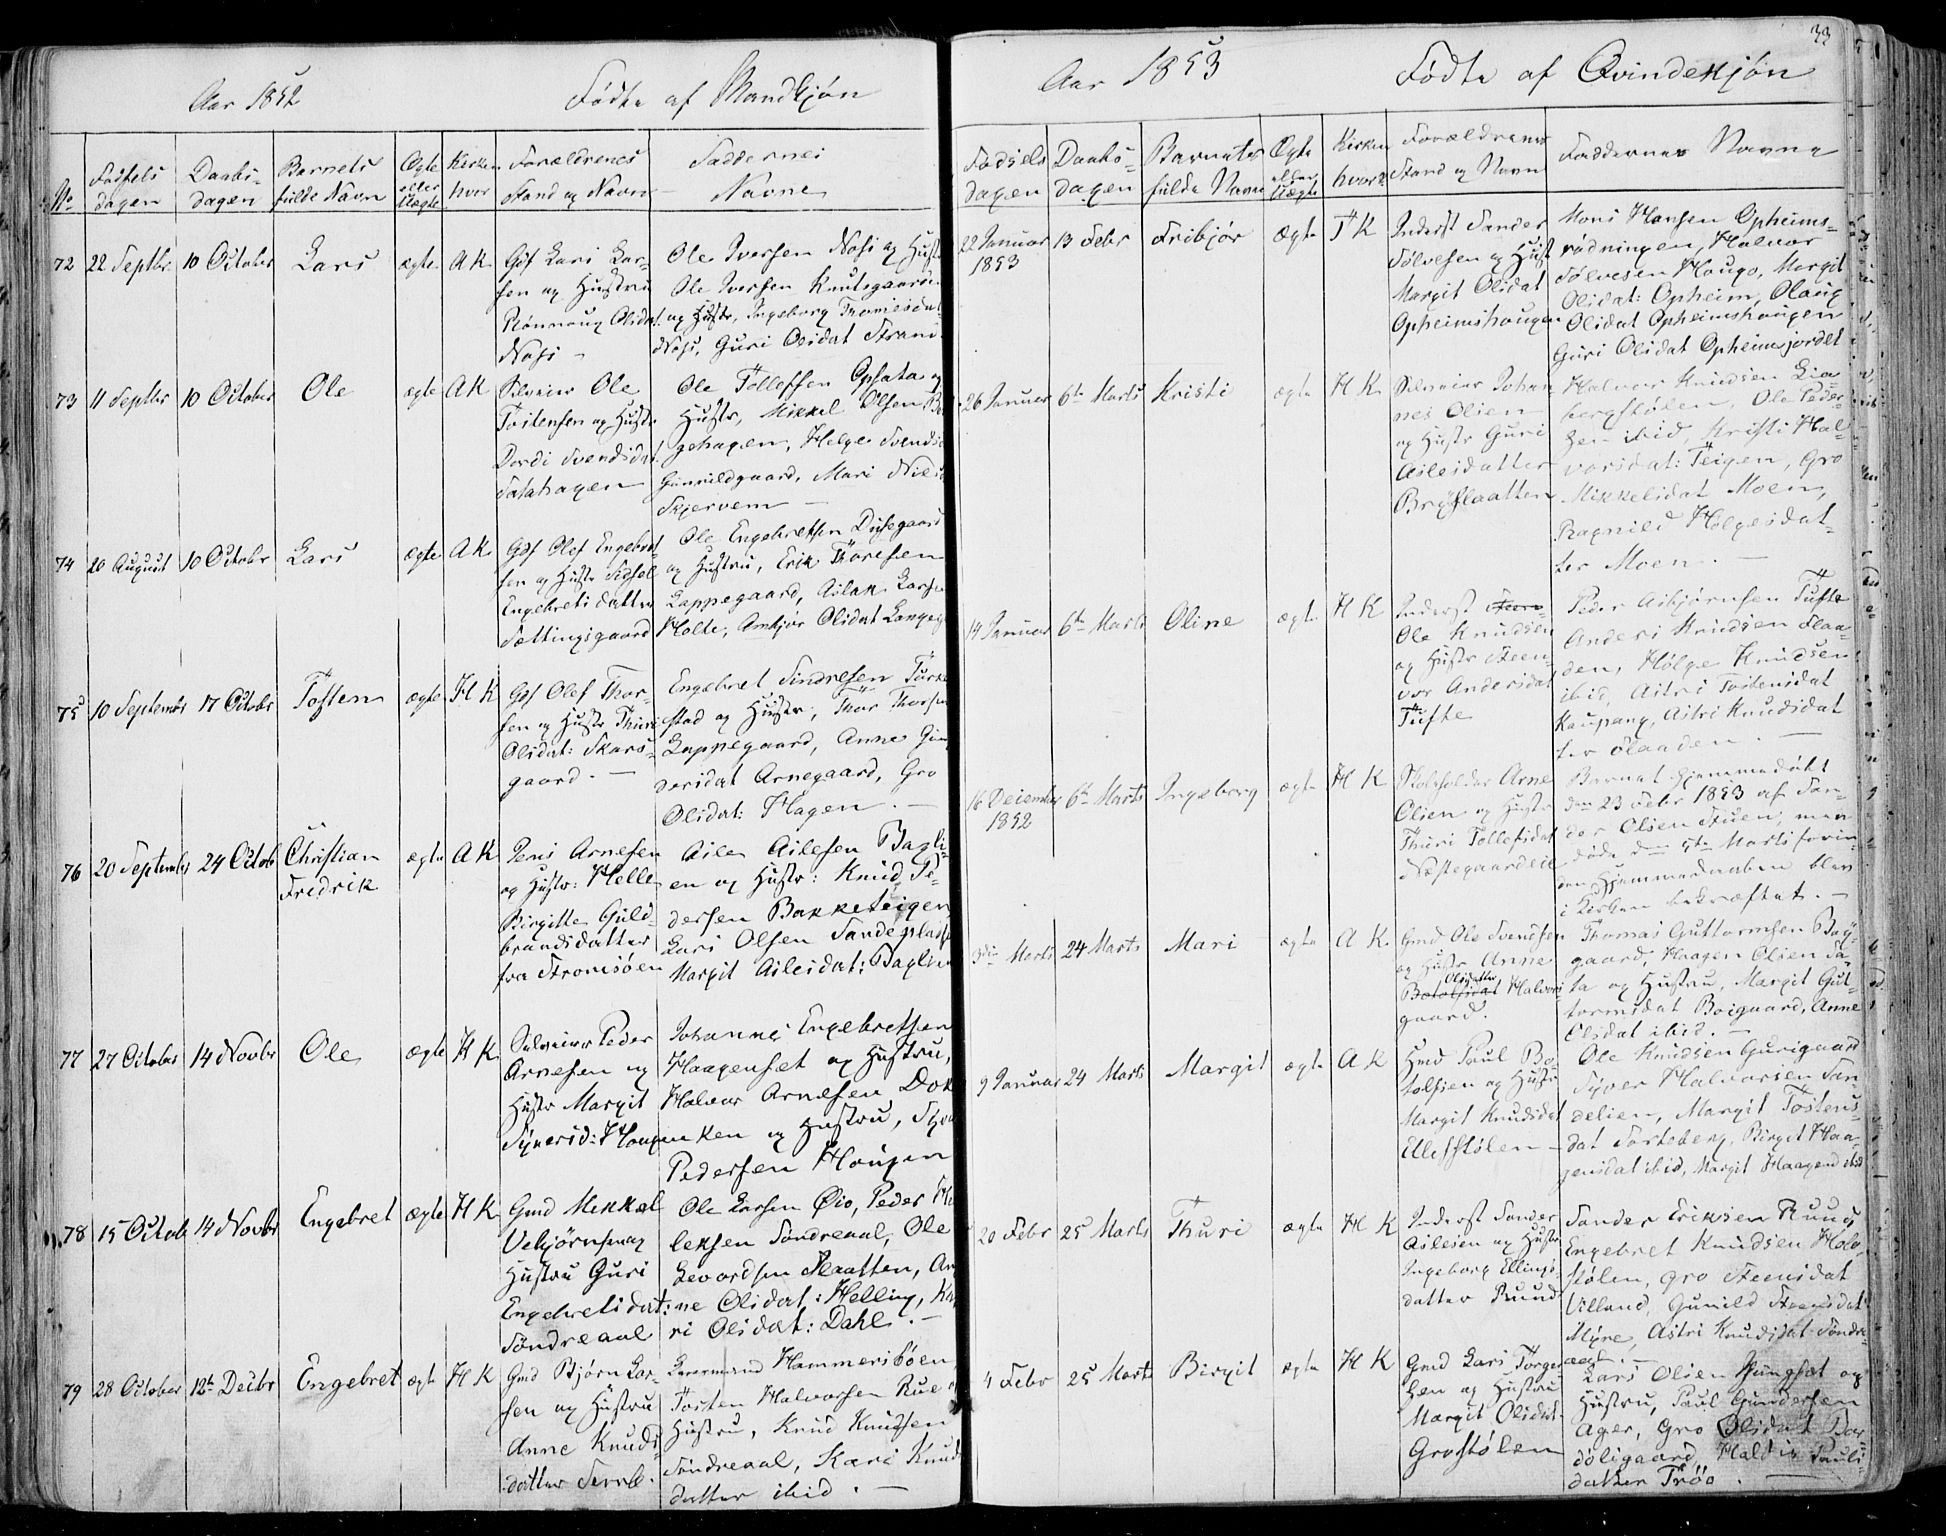 Aar 1852 Födte af Mandkjön
No
Födsels dagen
Daabs- dagen
Barnets fulde Navn
Ægte eller Uægte
Kirken hvor
Forældrenes Stand og Navn
Faddernes Navne
72 22 Septbr 10 October Lars ægte A K
Gbf Lars Lar-
sen og Hustru
Rönnoug Olidat
Næss
Ole Iversen Næss og Hustr
Ole Iversen Knutsgaarden
og Hustr, Ingeborg Thomesdat
Næss, Guri Olsdat Strand
73 11 Septbr 10 October Ole ægte A K
Selveier Ole
Tostensen og Hustr
Dordi Svendsdat
Satahagen
Ole Tollefsen Opsata og
Hustr, Mikkel Olsen
gehagen, Helge Svends
Gunnildgaard, Mari Niels
Skjervem
74 20 August 10 Octobr Lars ægte A K
Gbf Olef Engebret-
sen og Hustr Sidsel
Engebretsdatter
Sættingsgaard
Ole Engebretsen Dysegaard
og Hustru, Erik Thoresen
Lappegaard, Aslak Larsen
Holte, Ambjör Olsdat
75 10 September 17 Octobr Tosten ægte H K
Gbf Olef Thor-
sen og Hustr Thuri
Olsdat: Skars-
gaard.
Engebret Sindresen Torke
stad og Hustr, Thor Thorsen
Lappegaard, Anne Gun
dersdat Arnegaard, Gro
Olsdat: Hagen.
76 20 September 24 Octob Christian Fredrik ægte A K
Jens Arnesen
og Hustr: Helle
Birgitte Guld-
brandsdatter
fra Stromsöen
Asle Aslesen Bagli-
en og Hustr: Knud Pe-
dersen Bakketeigen
Lars Olsen Sandeplads
Margit Aslesdat: Baglien
77 27 October 14 Novbr Ole ægte H K
Selveier Peder
Arnesen og
Hustr Margit
Syversd: Hougen
Johannes Engebretsen
Haagenset og Hustru,
Halvor Arnesen Dok
ken og Hustru, Syver
Pedersen Hougen
78 15 Octob 14 Novbr Engebret ægte H K
Gmd Mekkel
Vebjörnsen og
Hustru Guri
Engebretsdat:
Söndreaal
Ole Larsen Öio, Peder
leksen Söndreaal, Ole
Levordsen Slaatten, An
ne Olsdat: Helling, Ka
ri Olsdat: Dahl.
79 28 October 12te Decbr Engebret ægt H K
Gmd Bjørn Lar-
sen og Hustru
Anne Knuds
datter
Hammersböen
Tosten Halvorsen Rue
Hustru, Knud Knudsen
Söndreaal, Kari Knud
datter ibid.
33
Aar 1853 Födte af Qvindekjön
Fødsels dagen
Daabs- dagen
Barnets fulde Navn
Ægte eller Uægte
Kirken hvor
Forældrenes Stand og Navn
Faddernes Navne
22 Januar 1853 13 Febr Fribjör ægte T K
Inderst Sander
Sölvesen og Hust
Margit Olsdat
Opheimshougen
Mons Hansen Opheims-
rödningen, Halvor
Sölvesen Hougo, Margit
Olsdat: Opheim, Olaug
Olsdat Opheimshougen
Guri Olsdat Opheimsjordet
26 Januar 6te Marts Kristi ægte H K
Selveier Johan-
nes Olsen
og Hustr Guri
Aslesdatter
Bröslaatten
Halvor Knudsen Lia-
bergstølen, Ole Peder-
sen ibid, Kristi Hal-
vorsdat: Teigen, Gro
Mikkelsdat Moen,
Ragnild Helgesdat-
ter Moen.
14 Januar 6te Marts Oline ægte H K
Inderst
Ole Knudsen
og Hustr Steen-
vor Andersdat
Tufte
Peder Asbjörnsen Tufte
Anders Knudsen Slaa-
den, Hölge Knudsen
ibid, Astri Tostensdat
Kaupang, Astri Knudsdat
ter Slaaden.
16 December 1852 6te Marts Ingeborg ægte H K
Skoleholder Arne
Olsen og Hustr
Thuri Tollefsdat
Næstegaardeie
Barnet hjemmedöbt
den 23 Febr 1853 af San-
der Olsen Stuen, men
döde den 5te Marts forin-
den Hjemmedaaben blev
i Kirken bekræftet.
3die Marts 24 Marts Mari ægte A K
Gmd Ole Svendsen
og Hustr Anne
Olsdatter
Botolfsdat Halvors
gaard.
Thomas Guttormsen Böi-
gaard, Haagen Olsen Sa-
ta og Hustru, Margit Gut-
tormsdat Böigaard, Anne
Olsdat ibid.
9 Januar 24 Marts Margit ægte A K
Hmd Paul Bo-
tolfsen og Hustr
Margit Knudsdat
Ellefstölen
Ole Knudsen Gurigaard
Syver Halvorsen San
delien, Margit Tostens-
dat Forteberg, Birgit Haa-
gensdat ibid, Margit Haagensd ibid
20 Febr 25 Marts Thuri ægte H K
Inderst Sander
Aslesen og Hustr
Ingeborg Ellings-
datter Ruud
Sander Eriksen Ruud
Engebret Knudsen Holo
stölen, Gro Steensdat
Villand, Gunild Steensdat
Myre, Astri Knudsdat Söndre
aal.
4 Febr 25 Marts Birgit ægte H K
Gmd Lars Torge
sen og Hustru
Margit Olsdat
Grostölen
Lars Olsen Kungset og
Hustru, Paul Gundersen
Ager, Gro Olsdat Bar-
doligaard, Haldis Pauls
datter Tröo.